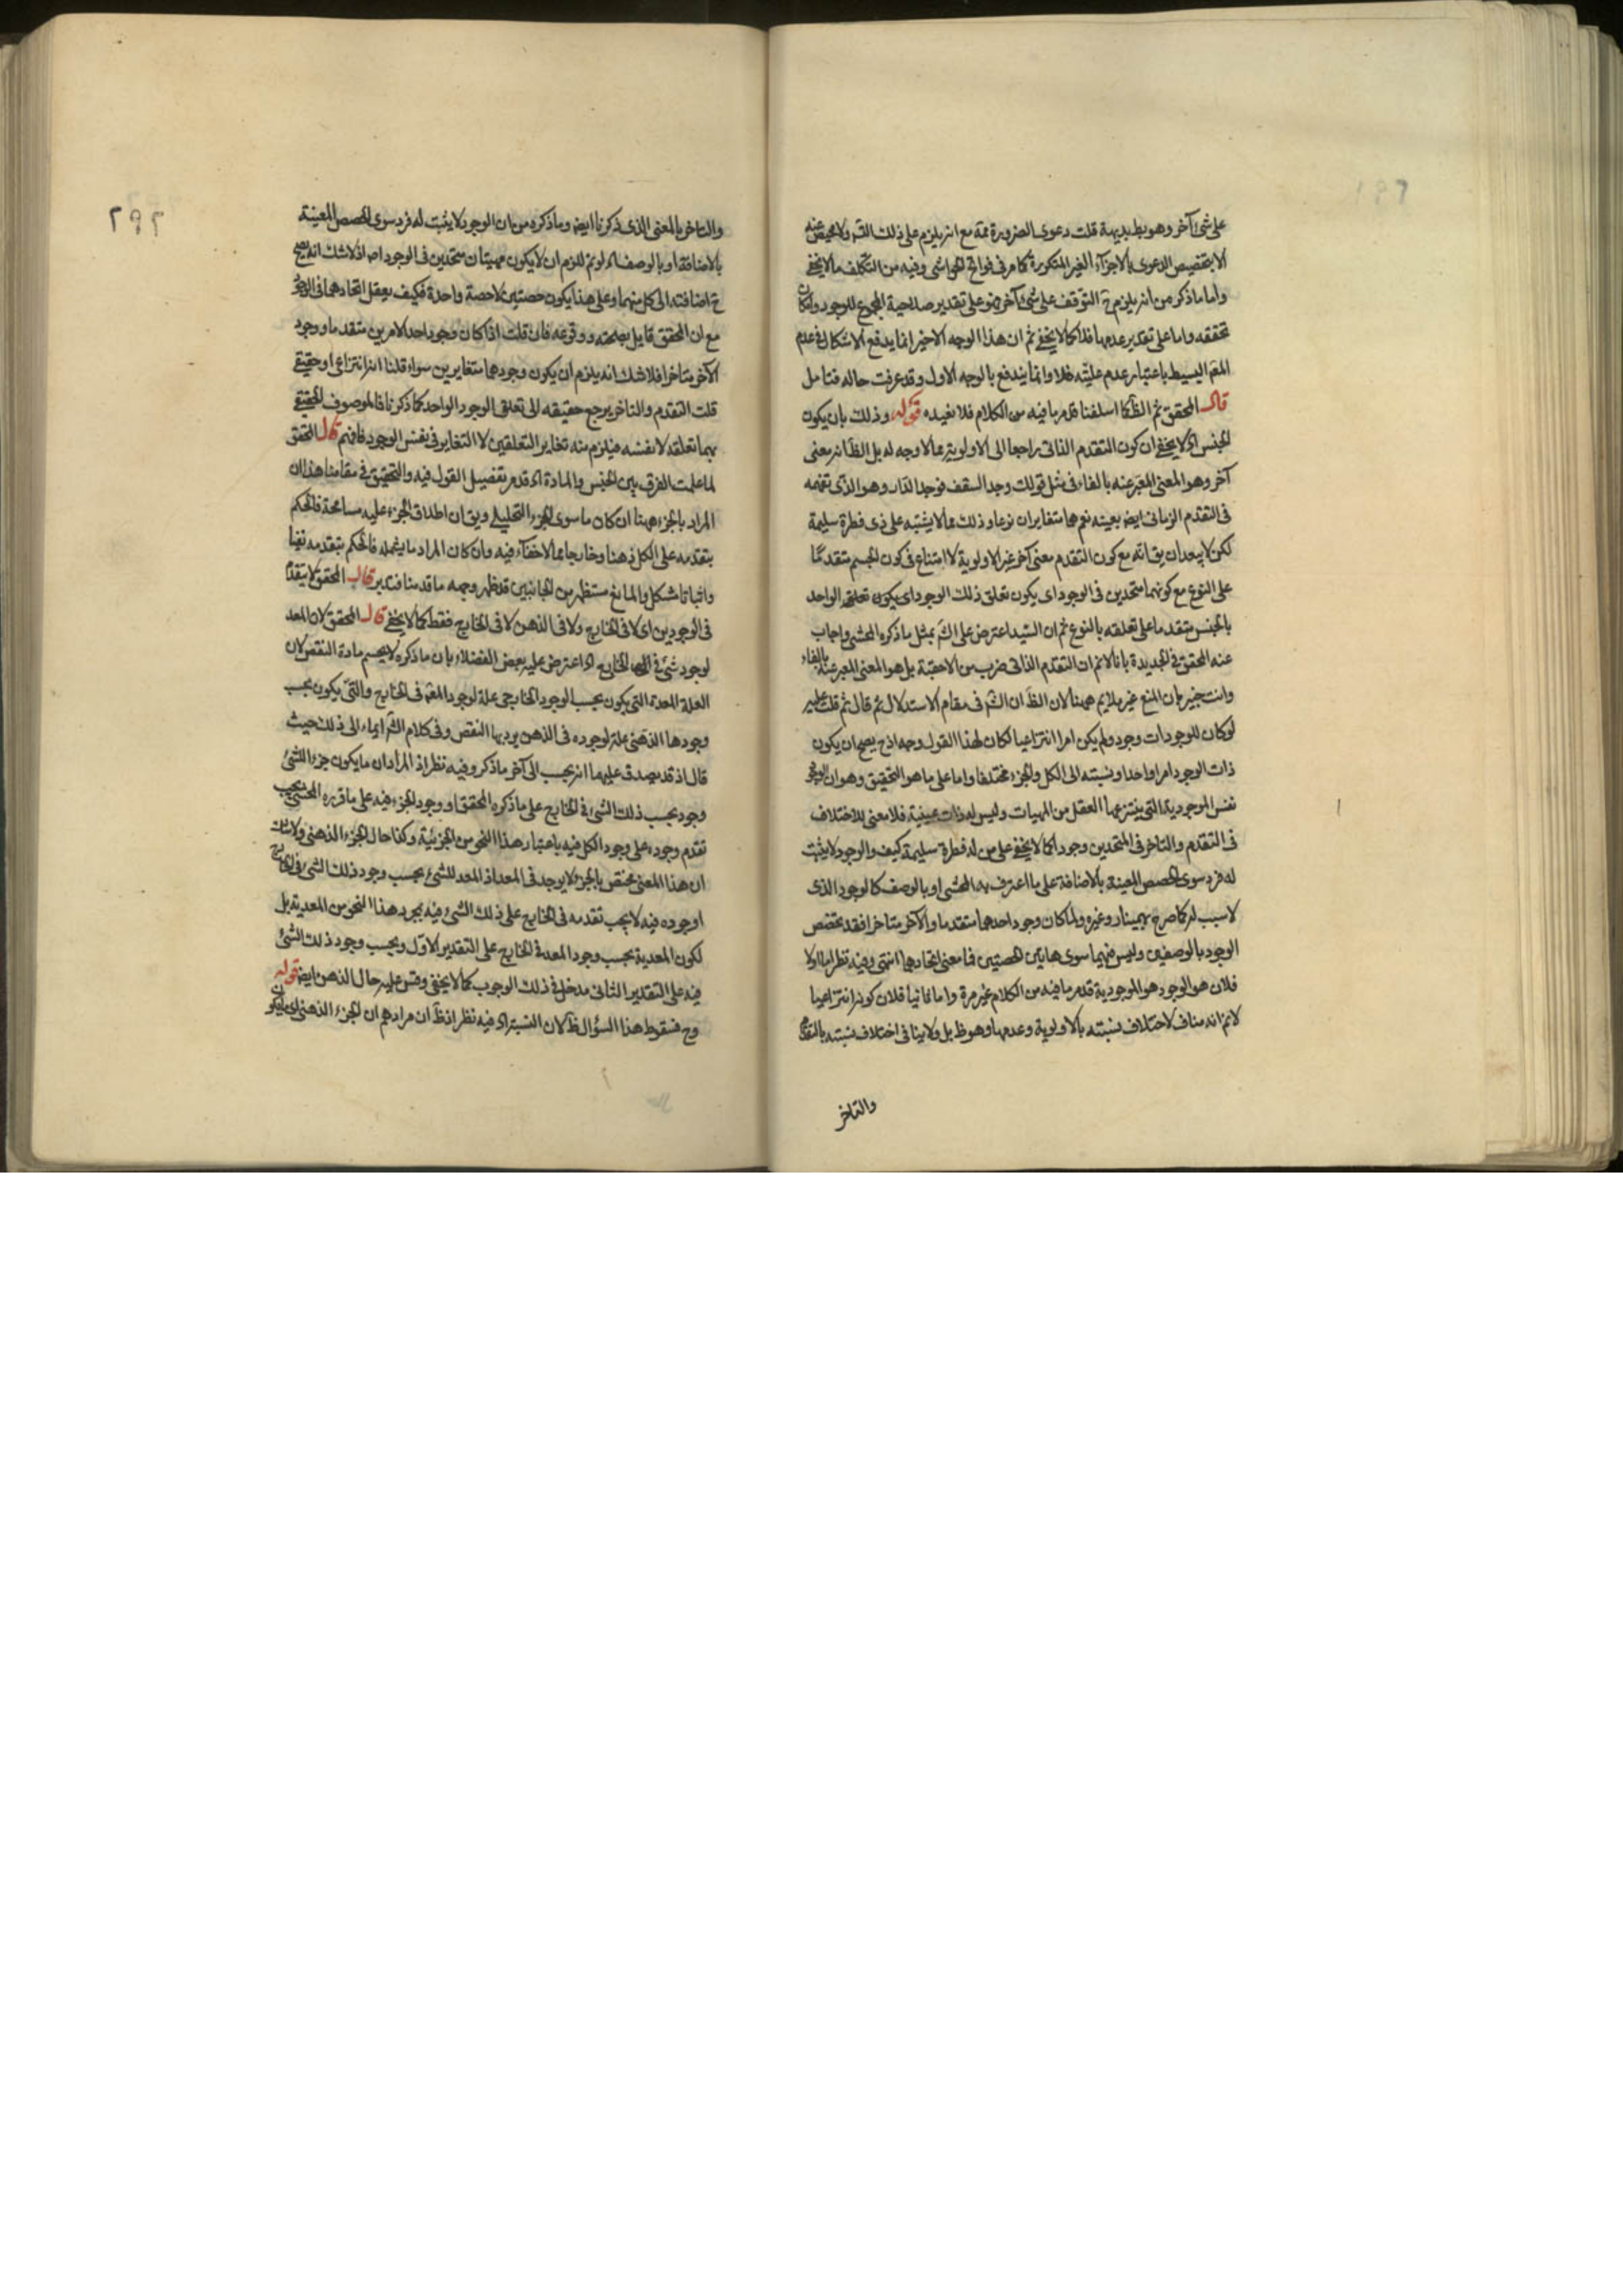 على شئ آخر وهو بط بديهة قلت دعوى الضرورة ثمة مع انه يلزم على ذلك التقـ ولا محيص عنه
الا بتخصيص الدعوى بالاجزآء الغير المتكررة كما مر فى فواتح الحواشى وفيه من التكلف ما لا يخفى
واما ما ذكر من انه يلزم ح التوقف على شئ آخر فهو على تقدير صلاحية المجموع للوجود وامكان
تحققه واما على تقدير عدمها فلا كما لا يخفى ثم ان هذا الوجه الاخير انما يدفع الاشكال فى عدم
المقم البسيط باعتبار عدم عليته فلا وانما يندفع بالوجه الاول وقد عرفت حاله فتامل
قال المحقق ثم الظ كما اسلفنا قد مر ما فيه من الكلام فلا نعيده قوله وذلك بان يكون
الجنس اه لا يخفى ان كون التقدم الذاتى راجعا الى الاولوية مما لا وجه له بل الظ انه معنى
آخر وهو المعنى المعبر عنه بالفاء فى مثل قولك وجد السقف فوجد الدار وهو الذى تفهمه
فى التقدم الزمانى ايض بعينه نعم هما متغايران نوعا وذلك مما لا يشتبه على ذى فطرة سليمة
لكن لا يبعد ان يق انه مع كون التقدم معنى آخر غير الاولوية لا امتناع فى كون الجسم متقدمًا
على النوع مع كونهما متحدين فى الوجود اى يكون تعلق ذلك الوجود اى يكون تعلق الواحد
بالجنس متقدما على تعلقه بالنوع ثم ان السّيد اعترض على الش بمثل ما ذكره المحشى واجاب
عنه المحقق فى الجديدة بانا لانم ان التقدم الذاتى ضرب من الاحقية بل هو المعنى المعبر عنه بالفاء
وانت خبير بان المنع غير ملايم ههنا لان الظ ان الش فى مقام الاستدلال ثم قال ثم قلت عليه
لو كان للوجودات وجود ولم يكن امرا انتزاعيا لكان لهذا القول وجه اذ ح يصح ان يكون
ذات الوجود امرا واحدا ونسبته الى الكل والجزء مختلفا واما على ما هو التحقيق وهو ان الوجود
نفس الموجودية التى ينتزعها العقل من المهيات وليس له ذات عينية فلا معنى للاختلاف
فى التقدم والتاخر فى المتحدين وجودا كما لا يخفى على من له فطرة سليمة كيف والوجود لا يثبت
له فرد سوى الحصص المعينة بالاضافة على ما اعترف به المحشى او بالوصف كالوجود الذى
لا سبب له كما صرح بهمينار وغيره ولما كان وجود احدهما متقدما والآخر متاخرا فقد تخصص
الوجود بالوصفين وليس فيهما سوى هاتين الحصتين فما معنى اتحادهما انتهى وفيه نظر اما اولا
فلان هو الوجود هو الموجودية قد مر ما فيه من الكلام غير مرة واما ثانيا فلان كونه انتزاعيا
لانم انه مناف لاختلاف نسبته بالاولوية وعدمها وهو ظ بل ولا ينافى اختلاف نسبته بالتقدم
والتاخر
٢٩٢
والتاخر بالمعنى الذى ذكرنا ايض وما ذكره من ان الوجود لا يثبت له فرد سوى الحصص المعينة
بالاضافة او بالوصف اه لو تم للزم ان لا يكون مهيتان متحدين فى الوجود اصلا اذ لا شك انه يصح
ح اضافته الى كل منهما وعلى هذا يكون حصتين لا حصة واحدة فكيف يعقل اتحادهما فى الوجود
مع ان المحقق قايل بصحته ووقوعه فان قلت اذا كان وجود احد الامرين متقدما ووجود
الآخر متاخرا فلا شك انه يلزم ان يكون وجودهما متغايرين سواء قلنا انه انتزاعى او حقيقى
قلت التقدم والتاخر يرجع حقيقة الى تعلق الوجود الواحد كما ذكرنا فالموصوف الحقيقى
بهما تعلقه لا نفسه فيلزم منه تغاير التعلقين لا التغاير فى نفس الوجود فافهم قال المحقق
لما علمت الفرق بين الجنس والمادة اه قد مر تفصيل القول فيه والتحقيق فى مقامنا هذا ان
المراد بالجزء ههنا ان كان ما سوى الجزء التحليلى ويق ان اطلاق الجزء عليه مسامحة فالحكم
بتقدمه على الكل ذهنا وخارجا مما لا خفآء فيه وان كان المراد ما يشمله فالحكم بتقدمه نفيا
واثباتا مشكل والمانع مستظهر من الجانبين قد ظهر وجهه ما قدمنا فتدبر قال المحقق لا يتقدم
فى الوجودين اى لا فى الخارج ولا فى الذهن لا فى الخارج فقط كما لا يخفى قال المحقق لان المعد
لوجود شئ فى الخارج اه اعترض عليه بعض الفضلاء بان ما ذكره لا يحسم مادة النقض لان
العلة المعدة التى يكون بحسب الوجود الخارجى علة لوجود المقم فى الخارج والتى يكون بحسب
وجودها الذهنى علة لوجوده فى الذهن يرد بها النقض وفى كلام الش ايماء الى ذلك حيث
قال اذ قد يصدق عليهما انه يجب الى آخر ما ذكر وفيه نظر اذ المراد ان ما يكون جزء الشئ
وجود بحسب ذلك الشئ فى الخارج على ما ذكره المحقق او وجود الجزء فيه على ما قرره المحشى يجب
تقدم وجوده على وجود الكل فيه باعتبار هذا النحو من الجزئية وكذا حال الجزء الذهنى ولا شك
ان هذا المعنى مختص بالجزء لا يوجد فى المعد اذ المعد للشئ بحسب وجود ذلك الشئ فى الخارج
او وجوده فيه لا يجب تقدمه فى الخارج على ذلك الشئ فيه بمجرد هذا النحو من المعدية بل
لكون المعدية بحسب وجود المعد فى الخارج على التقدير الاول وبحسب وجود ذلك الشئ
فيه على التقدير الثانى مدخل فى ذلك الوجوب كما لا يخفى وقس عليه حال الذهن ايض قوله
وح فسقوط هذا السؤال ظ لان النسبة اه فيه نظر اذ ظ ان مرادهم ان الجزء الذهنى اى ما يكون